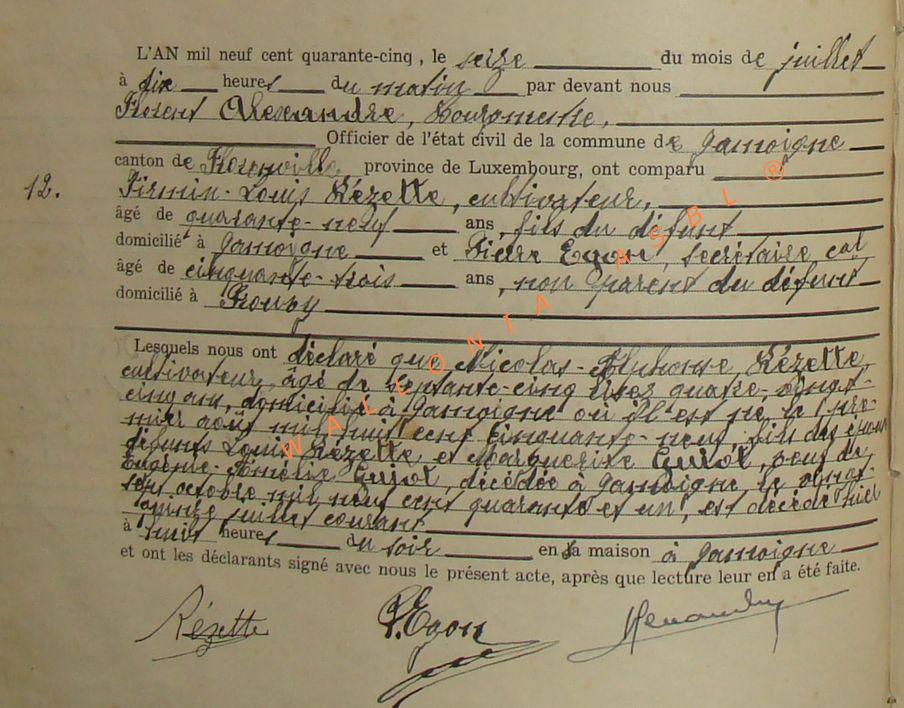 L'AN mil neuf cent quarante-cinq, le seize du mois de juillet
à dix heures du matin par devant nous
Florent Alexandre, Bourgmestre,
Officier de l'état civil de la commune de Jamoigne
canton de Florenville, province de Luxembourg, ont comparu
12.
Firmin-Louis Rézette, cultivateur,
âgé de quarante-neuf ans, fils du défunt
domicilié à Jamoigne et Pierre Egon, secrétaire cal
âgé de cinquante-trois ans, non parent du défunt
domicilié à Prouvy
Lesquels nous ont déclaré que Nicolas-Alphonse Rézette,
cultivateur, âgé de septante-cinq lisez quatre-vingt-
cinq ans, domicilié à Jamoigne où il est né, le pre-
mier août mil huit cent cinquante-neuf, fils des époux
défunts Louis Rézette et Marguerite Guiot, veuf de
Eugénie-Amélie Guiot, décédée à Jamoigne, le vingt-
sept octobre mil neuf cent quarante et un, est décédé hier
quinze juillet courant
à huit heures du soir en sa maison à Jamoigne
et ont les déclarants signé avec nous le présent acte, après que lecture leur en a été faite.
Rézette P. Egon
WALLONIA ASBL ®